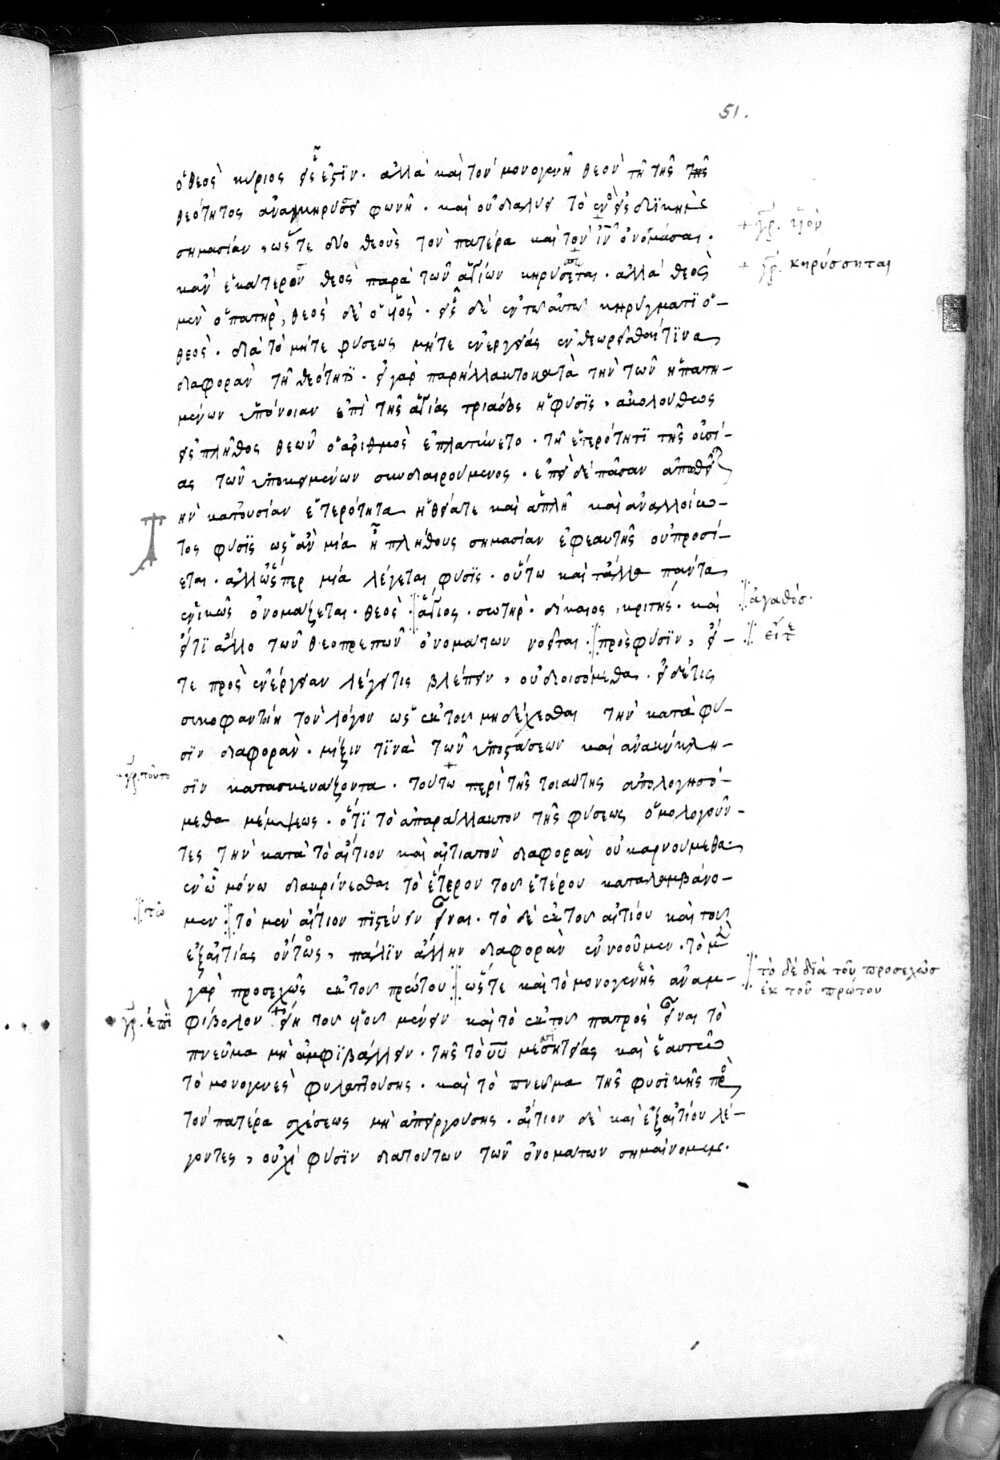 51.
ὁ θεὸς κύριος εἷς ἐστϊν· ἀλλὰ καὶ τὸν μονογενῆ θεὸν τῇ τῆς
θεότητος ἀνακηρύσσει φωνῇ· καὶ οὐ διαλύει τὸ ἓν εἰς δϊϊκὴν
σημασίαν, ὥστε δύο θεοὺς τὸν πατέρα καὶ τὸν ιν ὀνομάσαι·
+ γρ. υἱὸν
κἂν ἑκάτερον θεὸς παρὰ τῶν ἁγίων κηρύσεται· ἀλλὰ θεὸς
+ γρ. κηρύσσηται
μὲν ὁ πατὴρ, θεὸς δὲ ὁ υἱός· εἷς δὲ ἐν τῷ αὐτῷ κηρύγματϊ ὁ-
θεὸς· διὰ τὸ μήτε φύσεως μήτε ἐνεργείας ἐνθεωρεῖσθαί τϊνα
διαφορὰν τῇ θεότητϊ· εἰ γὰρ παρήλλακτο κατὰ τὴν τῶν ἠπατη-
μένων ὑπόνοιαν ἐπὶ τῆς ἁγίας τριάδος ἡ φύσϊς, ἀκολούθως
εἰς πλῆθος θεῶν ὁ ἀριθμὸς ἐπλατύνετο· τῇ ἑτερότητϊ τῆς οὐσί-
ας τῶν ὑποκειμένων συνδιαιρούμενος· ἐπεὶ δὲ πᾶσαν ἀπωθεῖ
ην κατουσίαν ἑτερότητα ἡ θεία τε καὶ ἁπλῆ καὶ ἀναλλοίω-
τος φύσϊς ὡς ἂν μία ᾖ πλήθους σημασίαν ἐφεαυτῆς οὐ προσί-
εται· ἀλλ' ὥσπερ μία λέγεται φύσϊς· οὕτω καὶ τἄλλα πάντα
ἑνϊκῶς ὀνομάζεται· θεὸς· ἅγιος· σωτήρ· δίκαιος, κριτής· καὶ
ἀγαθός·
εἴ τϊ ἄλλο τῶν θεοπρεπῶν ὀνομάτων νοεῖται· πρὸς φύσϊν, εἴ-
εἴτε
τε πρὸς ἐνέργειαν λέγει τις βλέπειν, οὐ διοισόμεθα· εἰ δέ τις
συκοφαντοίη τὸν λόγον ὡς ἐκ τοῦ μὴ δέχεσθαι τὴν κατὰ φύ-
σϊν διαφορὰν· μίξιν τϊνὰ τῶν ὑποστάσεων καὶ ἀνακύκλη-
σϊν κατασκευάζοντα· τούτω περὶ τῆς τοιαύτης ἀπολογησό-
+ γρ. τοῦτο
μεθα μέμψεως· ὅτϊ τὸ ἀπαράλλακτον τῆς φύσεως ὁμολογοῦν-
τες τὴν κατὰ τὸ αἴτιον καὶ αἰτιατὸν διαφορὰν οὐκ ἀρνούμεθα
ἐν ᾧ μόνω διακρίνεσθαι τὸ ἕτερον τοῦ ἑτέρου καταλαμβάνο-
μεν· τὸ μὲν αἴτιον πϊστεύειν εἶναι· τὸ δὲ ἐκ τοῦ αἰτίου καὶ τοῦ
τῶ
ἐξ αἰτίας ὄντος, πάλϊν ἄλλην διαφορὰν ἐννοοῦμεν· τὸ μὲν
γὰρ προσεχῶς ἐκ τοῦ πρώτου· ὥστε καὶ τὸ μονογενὴς ἀναμ-
τὸ δὲ διὰ τοῦ προσεχῶσ
ἐκ τοῦ πρώτου
φίβολον εἴη τοῦ υἱοῦ μένειν καὶ τὸ ἐκ τοῦ πατρὸς εἶναι τὸ
γρ. ἐπὶ
πνεῦμα μὴ ἀμφϊβάλλειν· τῆς τοῦ υυ μεσητείας καὶ ἑαυτῷ
τὸ μονογενὲς φυλαττούσης· καὶ τὸ πνεῦμα τῆς φυσϊκῆς πρὸς
τὸν πατέρα σχέσεως μὴ ἀπειργούσης· αἴτιον δὲ καὶ ἐξαιτίου λέ-
γοντες, οὐχὶ φύσϊν διὰ τούτων τῶν ὀνομάτων σημαίνομεν.